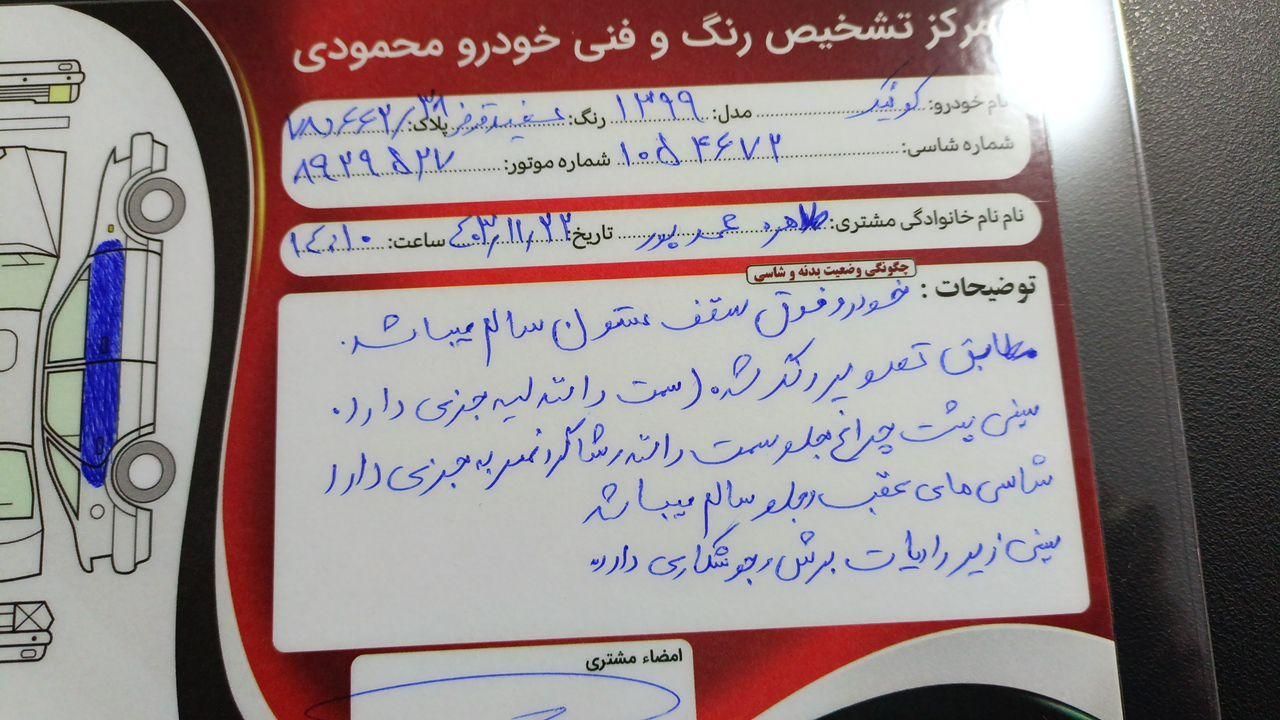 مرکز تشخیص رنگ و فنی خودرو محمودی
نام خودرو: کوئیک مدل: ۱۳۹۹ رنگ: سفید قرمز پلاک:
شماره شاسی: ۱۰۵۴۶۷۲ شماره موتور: ۸۹۲۹۵۲۷
نام نام خانوادگی مشتری: طاهره محمدپور تاریخ: ۴۰۳/۱۱/۲۲ ساعت: ۱۴:۱۰
چگونگی وضعیت بدنه و شاسی
توضیحات : خودرو فوق سقف ستون سالم میباشد.
مطابق تصویر رنگ شده (سمت راننده لبه جزی دارد.
سینی پشت چراغ جلو سمت راننده رشاگرد ضربه جزی دارد
شاسی های عقب و جلو سالم میباشد
سینی زیر رادیات برش و جوشکاری دارد
امضاء مشتری